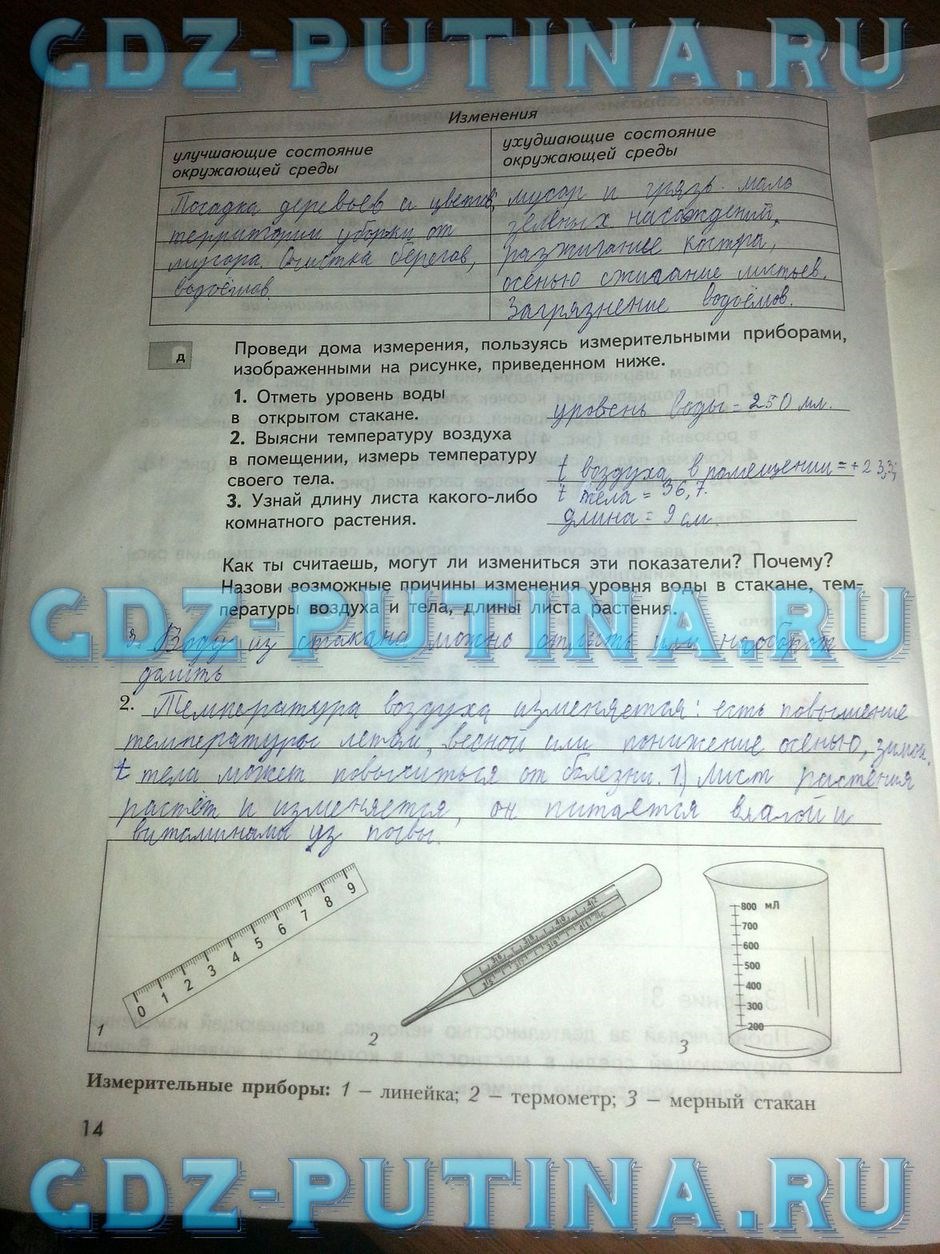 GDZ-PUTINA.RU
Изменения
улучшающие состояние
окружающей среды
ухудшающие состояние
окружающей среды
Посадка деревьев и
территории уборки от
мусора. Очистка берегов,
водоёмов.
мусор и грязь. мало
насаждений,
разжигание костра,
осенью сжигание листьев.
Загрязнение водоёмов.
д
Проведи дома измерения, пользуясь измерительными приборами,
изображенными на рисунке, приведенном ниже.
1. Отметь уровень воды
в открытом стакане.
уровень воды = 250 мл.
2. Выясни температуру воздуха
в помещении, измерь температуру
своего тела.
t воздуха в помещении = +23,
t тела = 36,7.
3. Узнай длину листа какого-либо
комнатного растения.
длина = 9 см
Как ты считаешь, могут ли измениться эти показатели? Почему?
Назови возможные причины изменения уровня воды в стакане, тем-
пературы воздуха и тела, длины листа растения.
GDZ-PUTINA.RU
Воду из стакана можно отпить или наоборот
долить
2. Температура воздуха изменяется: есть повышение
температуры летом, весной или понижение осенью, зимой.
t тела может повыситься от болезни. 1) Лист растения
растёт и изменяется, он питается влагой и
витаминами из почвы.
0 1 2 3 4 5 6 7 8 9
800 мЛ
700
600
500
400
300
200
1
2
3
Измерительные приборы: 1 – линейка; 2 – термометр; 3 – мерный стакан
14
GDZ-PUTINA.RU